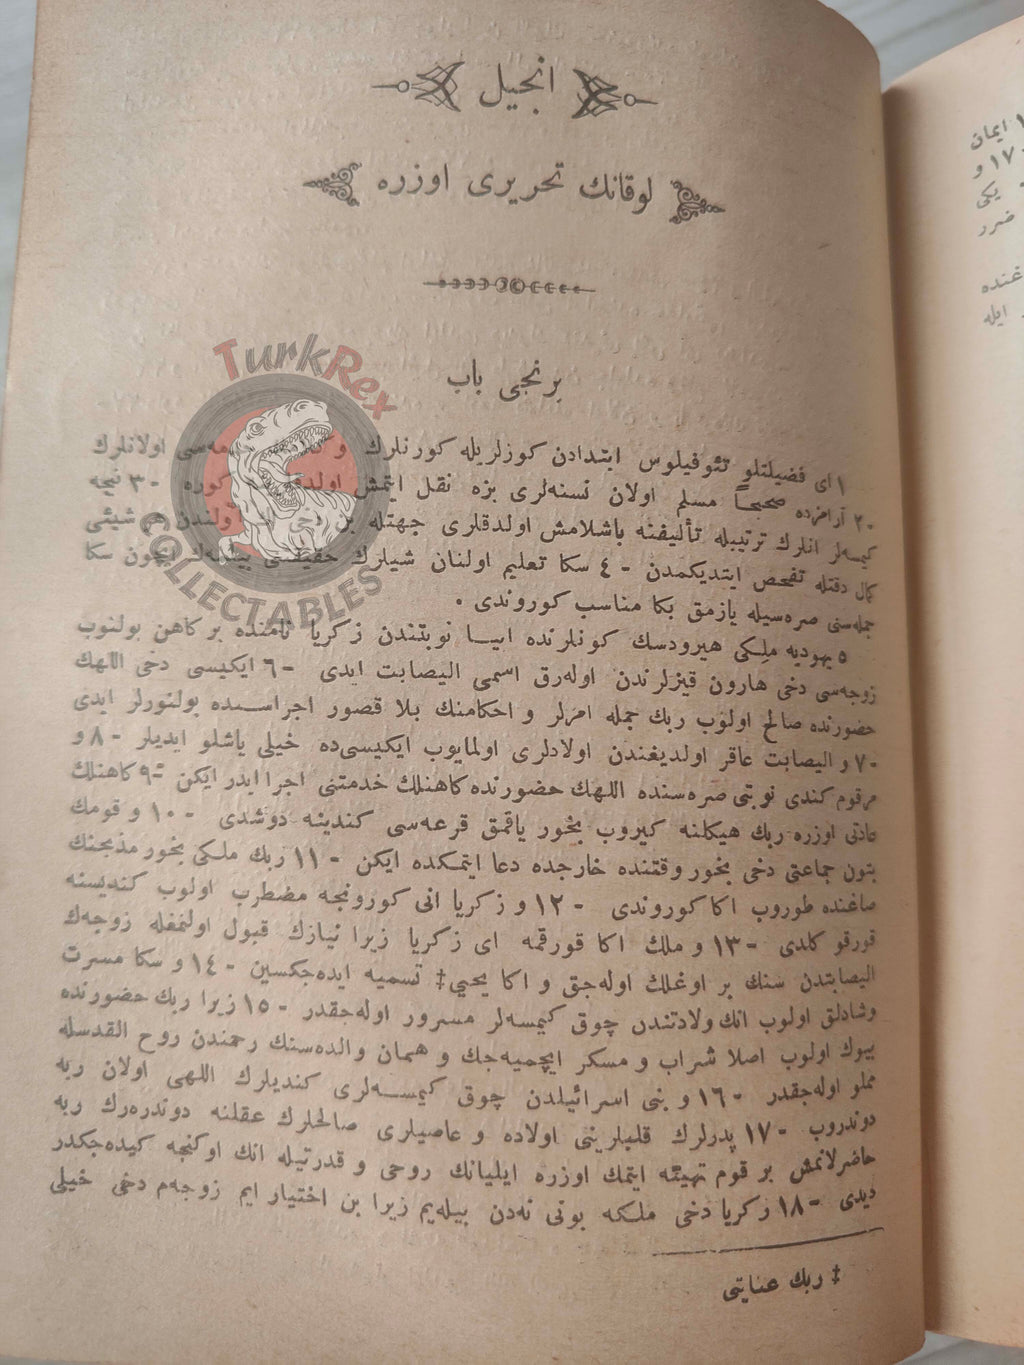 انجيل
لوقانك تحريری اوزره
برنجی باب
١ ای فضيلتلو تئوفيلوس ابتدادن كوزلريله كورنلرك و اولانلرك
٢- آرامزده صحيحاً مسلم اولان نسنه‌لری بزه نقل ايتمش كوره ٣- نيچه
كيمسه‌لر انلرك ترتيبيله تأليفنه باشلامش اولدقلری جهتله بن دخی شيئی
كمال دقتله تفحص ايتديكمدن ٤- سكا تعليم اولنان شيلرك ايچون سكا
جمله‌سنی صره‌سيله يازمق بكا مناسب كوروندی .
٥ يهوديه ملكی هيرودسك كونلرنده ابيا نوبتندن زكريا نامنده بر كاهن بولنوب
زوجه‌سی دخی هارون قيزلرندن اوله‌رق اسمی اليصابت ايدی ٦- ايكيسی دخی اللهك
حضورنده صالح اولوب ربك جمله امرلر و احكامنك بلا قصور اجراسنده بولنورلر ايدی
٧- و اليصابت عاقر اولديغندن اولادلری اولمايوب ايكيسی‌ده خيلی ياشلو ايديلر ٨- و
مرقوم كندی نوبتی صره‌سنده اللهك حضورنده كاهنلك خدمتنی اجرا ايدر ايكن ٩- كاهنلك
عادتی اوزره ربك هيكلنه كيروب بخور ياقمق قرعه‌سی كندينه دوشدی ١٠- و قومك
بتون جماعتی دخی بخور وقتنده خارجده دعا ايتمكده ايكن ١١- ربك ملكی بخور مذبحنك
صاغنده طوروب اكا كوروندی ١٢- و زكريا انی كورونجه مضطرب اولوب كنديسنه
قورقو كلدی ١٣- و ملك اكا قورقمه ای زكريا زيرا نيازك قبول اولنمغله زوجه‌ك
اليصابتدن سنك بر اوغلك اوله‌جق و اكا يحيی‡ تسميه ايده‌جكسين ١٤- و سكا مسرت
وشادلق اولوب انك ولادتندن چوق كيمسه‌لر مسرور اوله‌جقدر ١٥- زيرا ربك حضورنده
بيوك اولوب اصلا شراب و مسكر ايچميه‌جك و همان والده‌سنك رحمندن روح القدسله
مملو اوله‌جقدر ١٦- و بنی اسرائيلدن چوق كيمسه‌لری كنديلرك اللهی اولان ربه
دوندروب ١٧- پدرلرك قلبلرينی اولاده و عاصيلری صالحلرك عقلنه دوندره‌رك ربه
حاضرلانمش بر قوم تهيئه ايتمك اوزره ايليانك روحی و قدرتيله انك اوكنجه كيده‌جكدر
ديدی ١٨- زكريا دخی ملكه بونی نه‌دن بيله‌يم زيرا بن اختيار ايم زوجه‌م دخی خيلی
‡ ربك عنايتی
١ ايمان
١٧- و
يكی
ضرر
ايله
TurkRex
COLLECTABLES